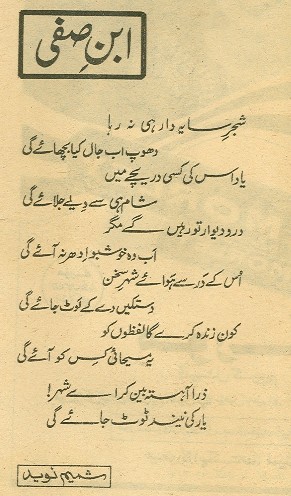 ابنِ صفی
شجرِ سایہ دار ہی نہ رہا
دھوپ اب جال کیا بچھائے گی
یاد اس کی کسی دریچے میں
شام ہی سے دیے جلائے گی
در و دیوار تو رہیں گے مگر
اب وہ خوشبو ادھر نہ آئے گی
اُس کے در سے ہوائے شہرِ سخن
دستکیں دے کے لوٹ جائے گی
کون زندہ کرے گا لفظوں کو
یہ مسیحائی کس کو آئے گی
ذرا آہستہ بین کر اے شہر!
یار کی نیند ٹوٹ جائے گی
شمیم نوید